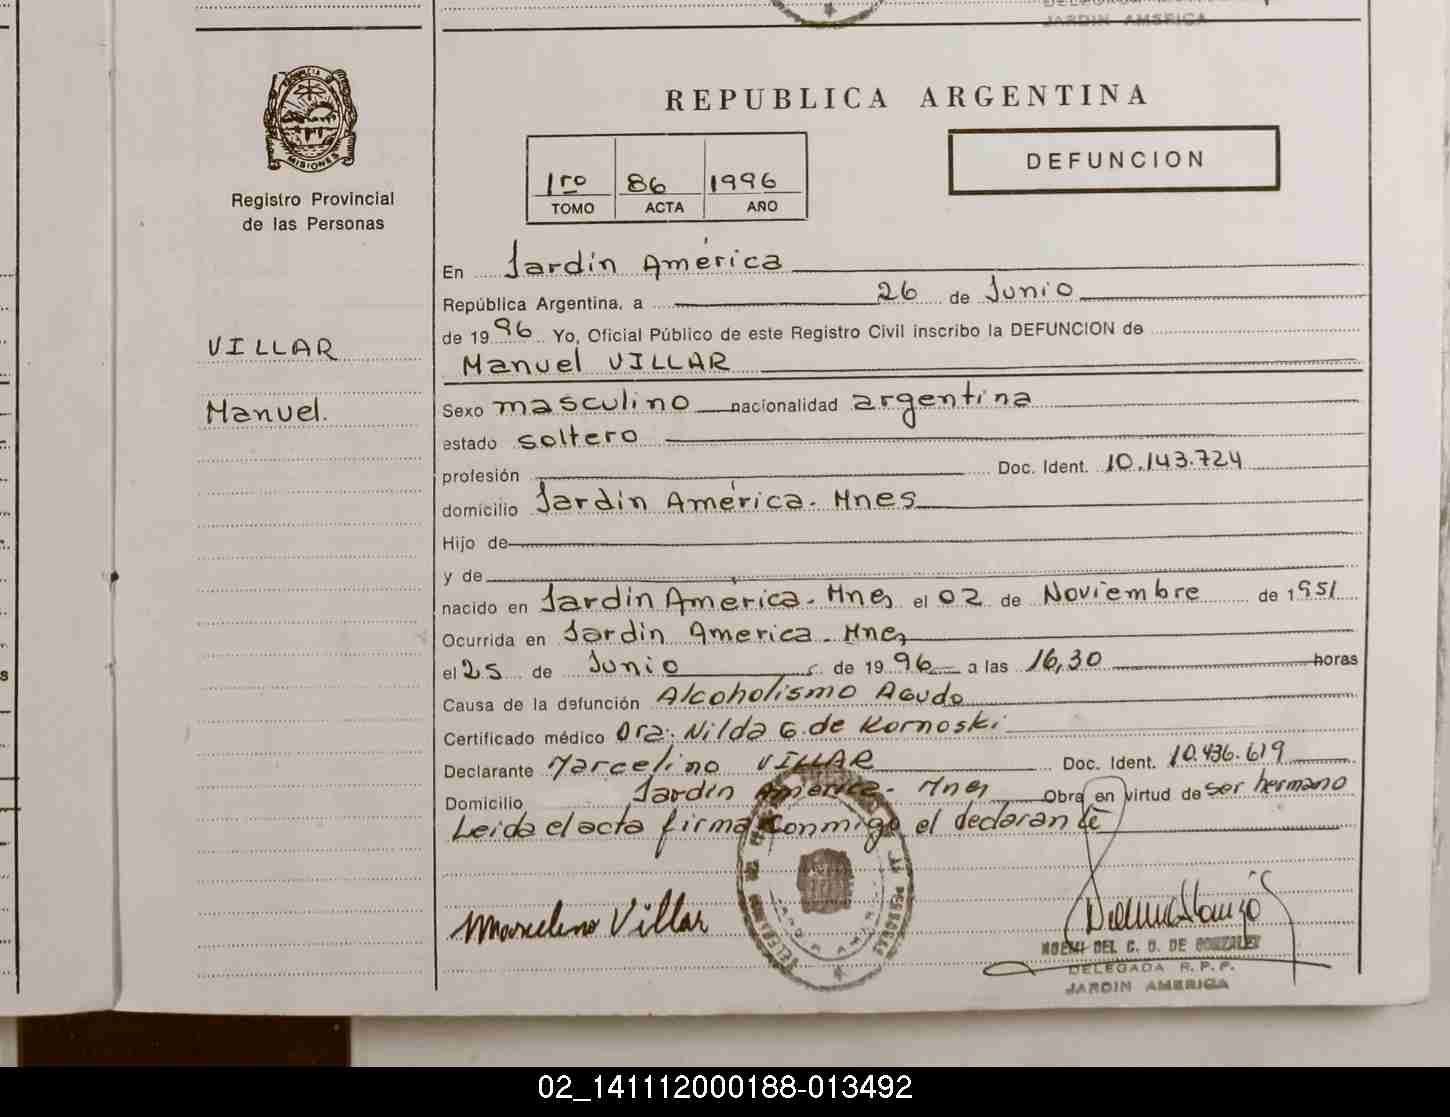 JARDIN AMERICA
REPUBLICA ARGENTINA
MISIONES
Registro Provincial
de las Personas
DEFUNCION
1ro 86 1996
TOMO ACTA AÑO
En Jardín América
República Argentina, a 26 de Junio
de 1996 Yo, Oficial Público de este Registro Civil inscribo la DEFUNCION de
Manuel VILLAR
VILLAR
Manuel.
Sexo masculino nacionalidad argentina
estado soltero
profesión Doc. Ident. 10.143.724
domicilio Jardín América. Mnes
Hijo de
y de
nacido en Jardín América. Mnes el 02 de Noviembre de 1951
Ocurrida en Jardín America. Mnes
el 25 de Junio de 1996 a las 16,30 horas
Causa de la defunción Alcoholismo Agudo
Certificado médico Dra. Nilda G. de Kornoski
Declarante Marcelino VILLAR Doc. Ident. 10.436.619
Domicilio Jardín América. Mnes Obra en virtud de ser hermano
Leida el acta firma conmigo el declarante
Marcelino Villar
NOEMI DEL C. D. DE GONZALEZ
DELEGADA R. P. P.
JARDIN AMERICA
02_141112000188-013492